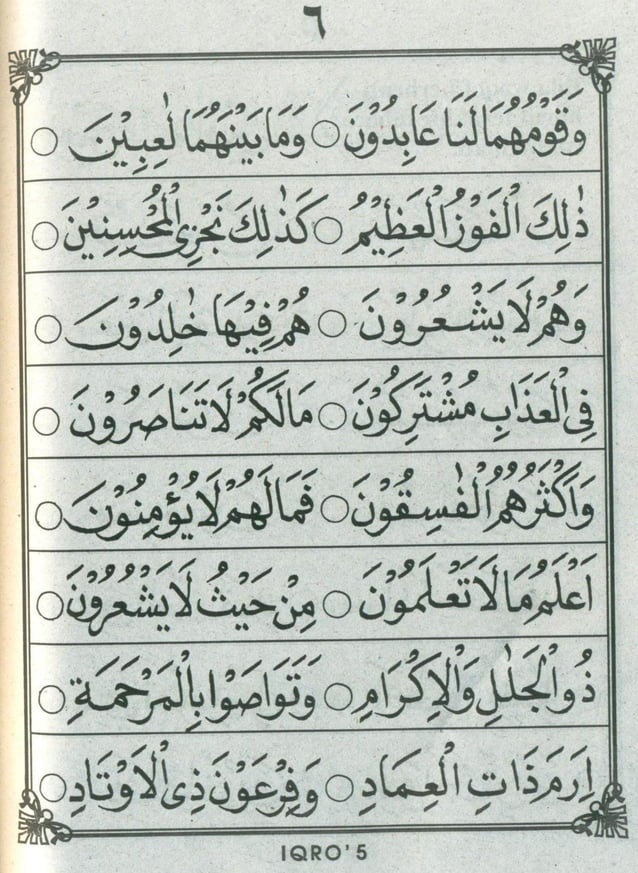 ٦
وَقَوْمُهُمَا لَنَا عَابِدُوْنَ ○ وَمَا بَيْنَهُمَا لٰعِبِيْنَ ○
ذٰلِكَ الْفَوْزُ الْعَظِيْمُ ○ كَذٰلِكَ نَجْزِى الْمُحْسِنِيْنَ ○
وَهُمْ لَا يَشْعُرُوْنَ ○ هُمْ فِيْهَا خٰلِدُوْنَ ○
فِى الْعَذَابِ مُشْتَرِكُوْنَ ○ مَالَكُمْ لَا تَنَاصَرُوْنَ ○
وَاَكْثَرُهُمُ الْفٰسِقُوْنَ ○ فَمَالَهُمْ لَا يُؤْمِنُوْنَ ○
اَعْلَمُ مَا لَا تَعْلَمُوْنَ ○ مِنْ حَيْثُ لَا يَشْعُرُوْنَ ○
ذُو الْجَلٰلِ وَالْاِكْرَامِ ○ وَتَوَاصَوْا بِالْمَرْحَمَةِ ○
اِرَمَ ذَاتِ الْعِمَادِ ○ وَفِرْعَوْنَ ذِى الْاَوْتَادِ ○
IQRO'5